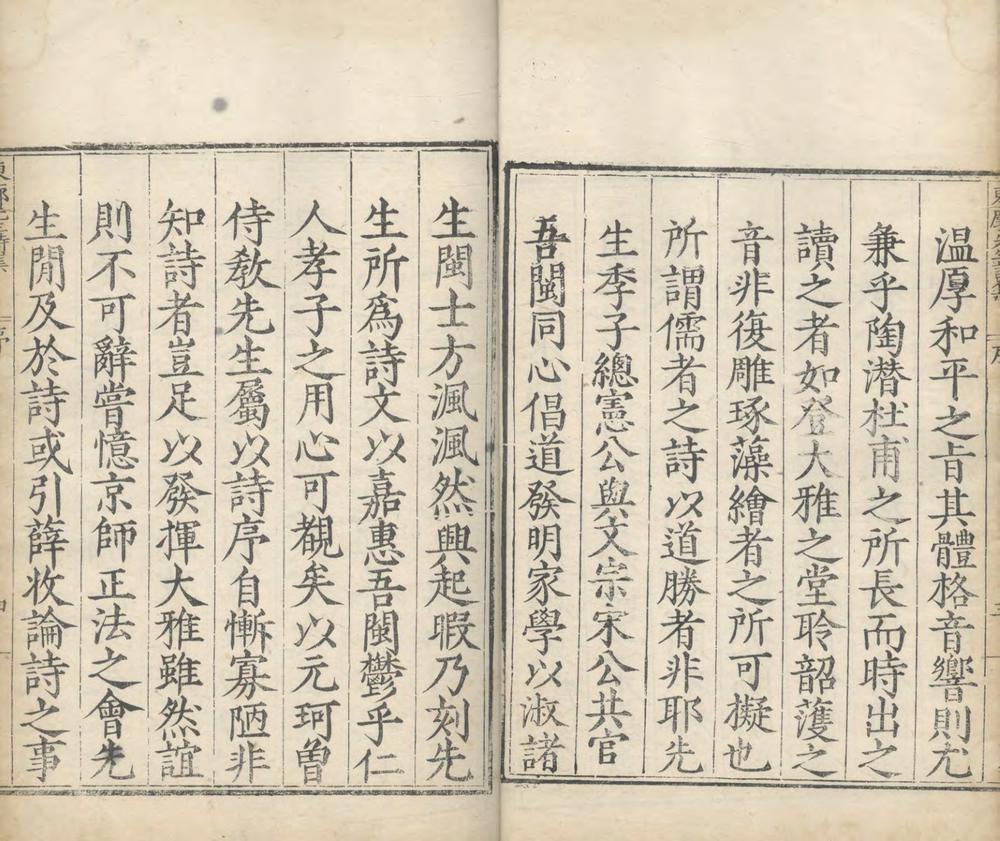 温厚和平之旨其體格音響則尤
兼乎陶潜杜甫之所長而時出之
讀之者如登大雅之堂聆韶濩之
音非復雕琢藻繪者之所可擬也
所謂儒者之詩以道勝者非耶先
生季子總憲公與文宗宋公共官
吾閩同心倡道發明家學以淑諸
生閩士方渢渢然興起暇乃刻先
生所爲詩文以嘉惠吾閩鬱乎仁
人孝子之用心可覩矣以元珂曽
侍教先生屬以詩序自慚寡陋非
知詩者豈足以發揮大雅雖然誼
則不可辭嘗憶京師正法之會先
生閒及於詩或引薛收論詩之事